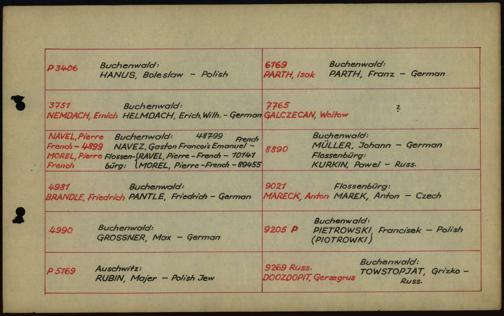 P 3406
Buchenwald:
HANUS, Boleslaw – Polish
6169
Buchenwald:
PARTH, Isak PARTH, Franz – German
3751
Buchenwald:
NEMDACH, Emich HELMDACH, Erich, Wilh. – German
7765
?
GALCZECAN, Woltow
NAVEL, Pierre Buchenwald: 48799 French
French – 4899 NAVEZ, Gaston Francois Emanuel –
MOREL, Pierre Flossen- (RAVEL, Pierre – French – 10141
French bürg: (MOREL, Pierre – French – 89455
8890
Buchenwald:
MÜLLER, Johann – German
Flossenbürg:
KURKIN, Pawel – Russ.
4981
Buchenwald:
BRANDLE, Friedrich PANTLE, Friedrich – German
9021
Flossenbürg:
MARECK, Anton MAREK, Anton – Czech
4990
Buchenwald:
GROSSNER, Max – German
9205 P
Buchenwald:
PIETROWSKI, Francisek – Polish
(PIOTROWKI)
P 5169
Auschwitz:
RUBIN, Majer – Polish Jew
9269 Russ.
Buchenwald:
DOOZDOPIT, Gerzegrus TOWSTOPJAT, Grizko –
Russ.